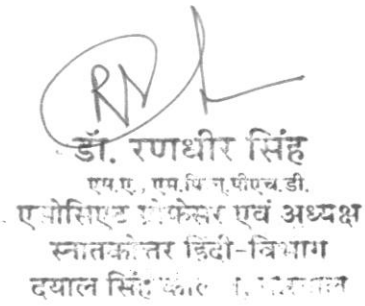 डॉ. रणधीर सिंह
एम.ए., एम.फिल.,पीएच.डी.
एसोसिएट प्रोफेसर एवं अध्यक्ष
स्नातकोत्तर हिंदी-विभाग
दयाल सिंह